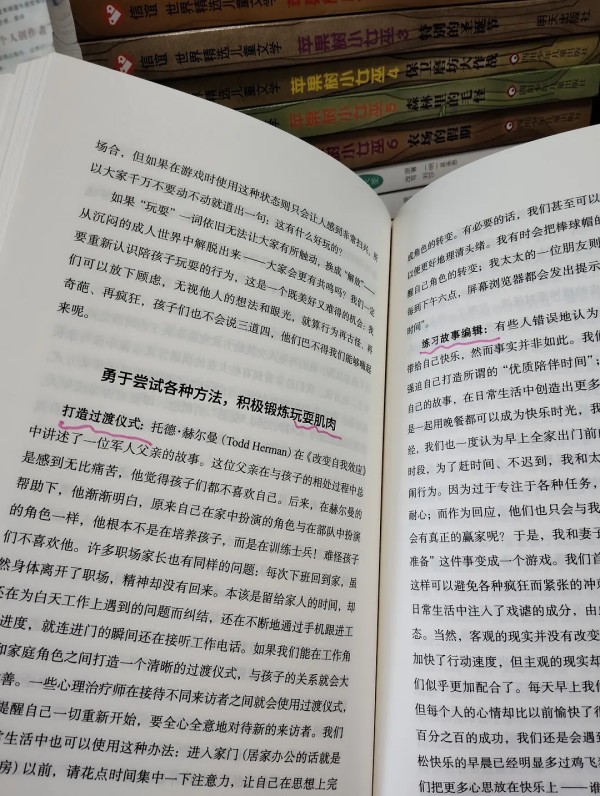 信谊 世界精选儿童文学
信谊 世界精选儿童文学 苹果树小女巫3 特别的圣诞节 明天出版社
信谊 世界精选儿童文学 苹果树小女巫4 保卫磨坊大作战
苹果树小女巫5 森林里的毛怪
苹果树小女巫6 农场的假期
场合，但如果在游戏时使用这种状态则只会让人感到非常扫兴，所
以大家千万不要动不动就道出一句：这有什么好玩的？
如果“玩耍”一词依旧无法让大家有所触动，换成“解放”——
从沉闷的成人世界中解脱出来——大家会更有共鸣吗？我们一定
要重新认识陪孩子玩耍的行为，这是一个既美好又难得的机会：我
们可以放下顾虑，无视他人的想法和眼光，就算行为再古怪、再
奇葩、再疯狂，孩子们也不会说三道四，他们巴不得我们能够嗨起
来呢。
勇于尝试各种方法，积极锻炼玩耍肌肉
打造过渡仪式：托德·赫尔曼（Todd Herman）在《改变自我效应》
中讲述了一位军人父亲的故事。这位父亲在与孩子的相处过程中总
是感到无比痛苦，他觉得孩子们都不喜欢自己。后来，在赫尔曼的
帮助下，他渐渐明白，原来自己在家中扮演的角色与在部队中扮演
的角色一样，他根本不是在培养孩子，而是在训练士兵！难怪孩子
们不喜欢他。许多职场家长也有同样的问题：每次下班回到家，虽
然身体离开了职场，精神却没有回来。本该是留给家人的时间，却
还在为白天工作上遇到的问题而纠结，还在不断地通过手机跟进工
进度，就连进门的瞬间还在接听工作电话。如果我们能在工作角
和家庭角色之间打造一个清晰的过渡仪式，与孩子的关系就会大
善。一些心理治疗师在接待不同来访者之间就会使用过渡仪式，
提醒自己一切重新开始，要全心全意地对待新的来访者。我们
常生活中也可以使用这种办法：进入家门（居家办公的话就是
房）以前，请花点时间集中一下注意力，让自己在思想上完
成角色的转变。有必要的话，我们甚至可以
以便更好地理清头绪。我有时会把棒球帽的
醒自己角色的转变；我太太的一位朋友则
每到下午六点，屏幕浏览器都会发出提示
时间”。
练习故事编辑：有些人错误地认为
带给自己快乐，然而事实并非如此。我们
强迫自己打造所谓的“优质陪伴时间”；
自己的故事，在日常生活中创造出更多
是一起用晚餐都可以成为快乐时光，我
经，我们也一度认为早上全家出门前白
时段，为了赶时间、不迟到，我和太
闹行为。因为过于专注于各种任务，
耐心；而作为回应，他们也只会与我
会有真正的赢家呢？于是，我和妻子
准备”这件事变成一个游戏。我们首
这样可以避免各种疯狂而紧张的冲突
日常生活中注入了戏谑的成分，由此
态。当然，客观的现实并没有改变
加快了行动速度，但主观的现实却
们似乎更加配合了。每天早上我们
但每个人的心情却比以前愉快了很
百分之百的成功，我们还是会遇到
松快乐的早晨已经明显多过鸡飞
们把更多心思放在快乐上——谁